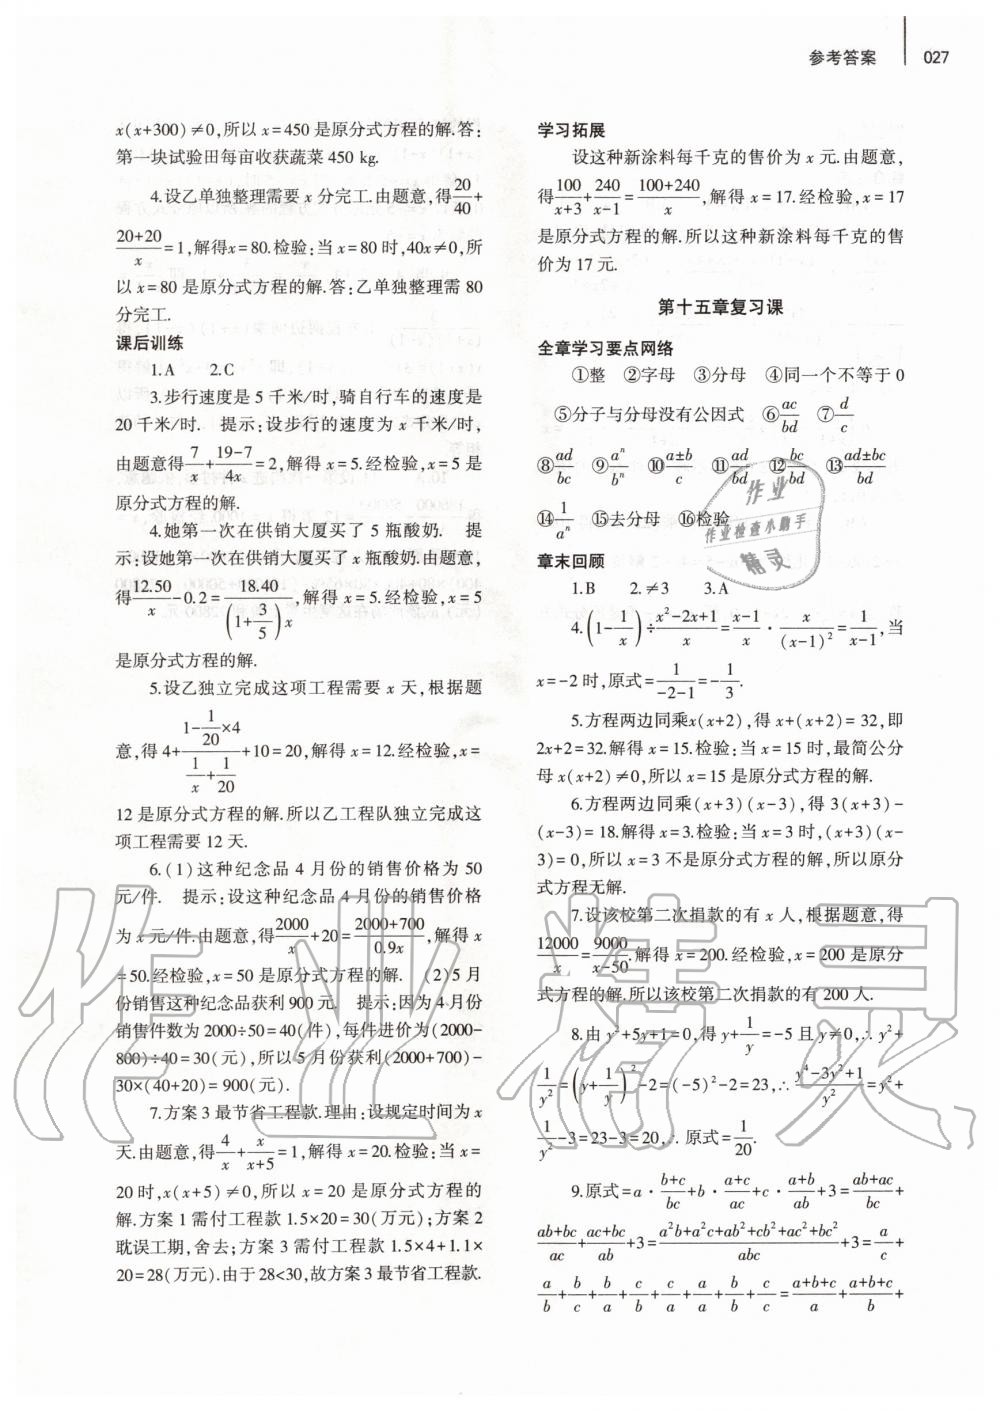 参考答案 027
x(x+300)≠0,所以 x=450 是原分式方程的解.答:
第一块试验田每亩收获蔬菜 450 kg.
4.设乙单独整理需要 x 分完工.由题意,得20/40+
(20+20)/x=1,解得x=80.检验:当 x=80 时,40x≠0,所
以 x=80 是原分式方程的解.答:乙单独整理需 80
分完工.
课后训练
1.A 2.C
3.步行速度是 5 千米/时,骑自行车的速度是
20 千米/时. 提示:设步行的速度为 x 千米/时,
由题意得7/x+(19-7)/4x=2,解得 x=5.经检验,x=5 是
原分式方程的解.
4.她第一次在供销大厦买了 5 瓶酸奶. 提
示:设她第一次在供销大厦买了 x 瓶酸奶.由题意,
得12.50/x-0.2=18.40/((1+3/5)x),解得 x=5.经检验,x=5
是原分式方程的解.
5.设乙独立完成这项工程需要 x 天,根据题
意,得 4+(1-1/20×4)/(1/x+1/20)+10=20,解得 x=12.经检验,x=
12 是原分式方程的解.所以乙工程队独立完成这
项工程需要 12 天.
6.(1)这种纪念品 4 月份的销售价格为 50
元/件. 提示:设这种纪念品 4 月份的销售价格
为 x 元/件.由题意,得2000/x+20=(2000+700)/0.9x,解得 x
=50.经检验,x=50 是原分式方程的解. (2)5 月
份销售这种纪念品获利 900 元. 提示:因为 4 月份
销售件数为 2000÷50=40(件),每件进价为(2000-
800)÷40=30(元),所以 5 月份获利(2000+700)-
30×(40+20)=900(元).
7.方案 3 最节省工程款.理由:设规定时间为 x
天.由题意,得4/x+x/(x+5)=1,解得 x=20.检验:当 x=
20 时,x(x+5)≠0,所以 x=20 是原分式方程的
解.方案 1 需付工程款 1.5×20=30(万元);方案 2
耽误工期,舍去;方案 3 需付工程款 1.5×4+1.1×
20=28(万元).由于 28<30,故方案 3 最节省工程款.
学习拓展
设这种新涂料每千克的售价为 x 元.由题意,
得100/(x+3)+240/(x-1)=(100+240)/x,解得 x=17.经检验,x=17
是原分式方程的解.所以这种新涂料每千克的售
价为 17 元.
第十五章复习课
全章学习要点网络
①整 ②字母 ③分母 ④同一个不等于 0
⑤分子与分母没有公因式 ⑥ac/bd ⑦d/c
⑧ad/bc ⑨aⁿ/bⁿ ⑩(a±b)/c ⑪ad/bd ⑫bc/bd ⑬(ad±bc)/bd
⑭1/aⁿ ⑮去分母 ⑯检验
章末回顾
1.B 2.≠3 3.A
4.(1-1/x)÷(x²-2x+1)/x=(x-1)/x·x/(x-1)²=1/(x-1),当
x=-2 时,原式=1/(-2-1)=-1/3.
5.方程两边同乘x(x+2),得 x+(x+2)=32,即
2x+2=32.解得 x=15.检验:当 x=15 时,最简公分
母 x(x+2)≠0,所以 x=15 是原分式方程的解.
6.方程两边同乘(x+3)(x-3),得 3(x+3)-
(x-3)=18.解得 x=3.检验:当 x=3 时,(x+3)(x-
3)=0,所以 x=3 不是原分式方程的解,所以原分
式方程无解.
7.设该校第二次捐款的有 x 人,根据题意,得
12000/x=9000/(x-50).解得 x=200.经检验,x=200 是原分
式方程的解.所以该校第二次捐款的有 200 人.
8.由 y²+5y+1=0,得 y+1/y=-5 且 y≠0,∴ y²+
1/y²=(y+1/y)²-2=(-5)²-2=23,∴ (y⁴-3y²+1)/y²=y²+
1/y²-3=23-3=20,∴ 原式=1/20.
9.原式=a·(b+c)/bc+b·(a+c)/ac+c·(a+b)/ab+3=(ab+ac)/bc+
(ab+bc)/ac+(ac+bc)/ab+3=(a²b+a²c+ab²+cb²+ac²+bc²)/abc+3=a/c+
a/b+b/c+b/a+c/b+c/a+a/a+b/b+c/c=(a+b+c)/a+(a+b+c)/b+
作业
作业检查小助手
精灵
作业精灵